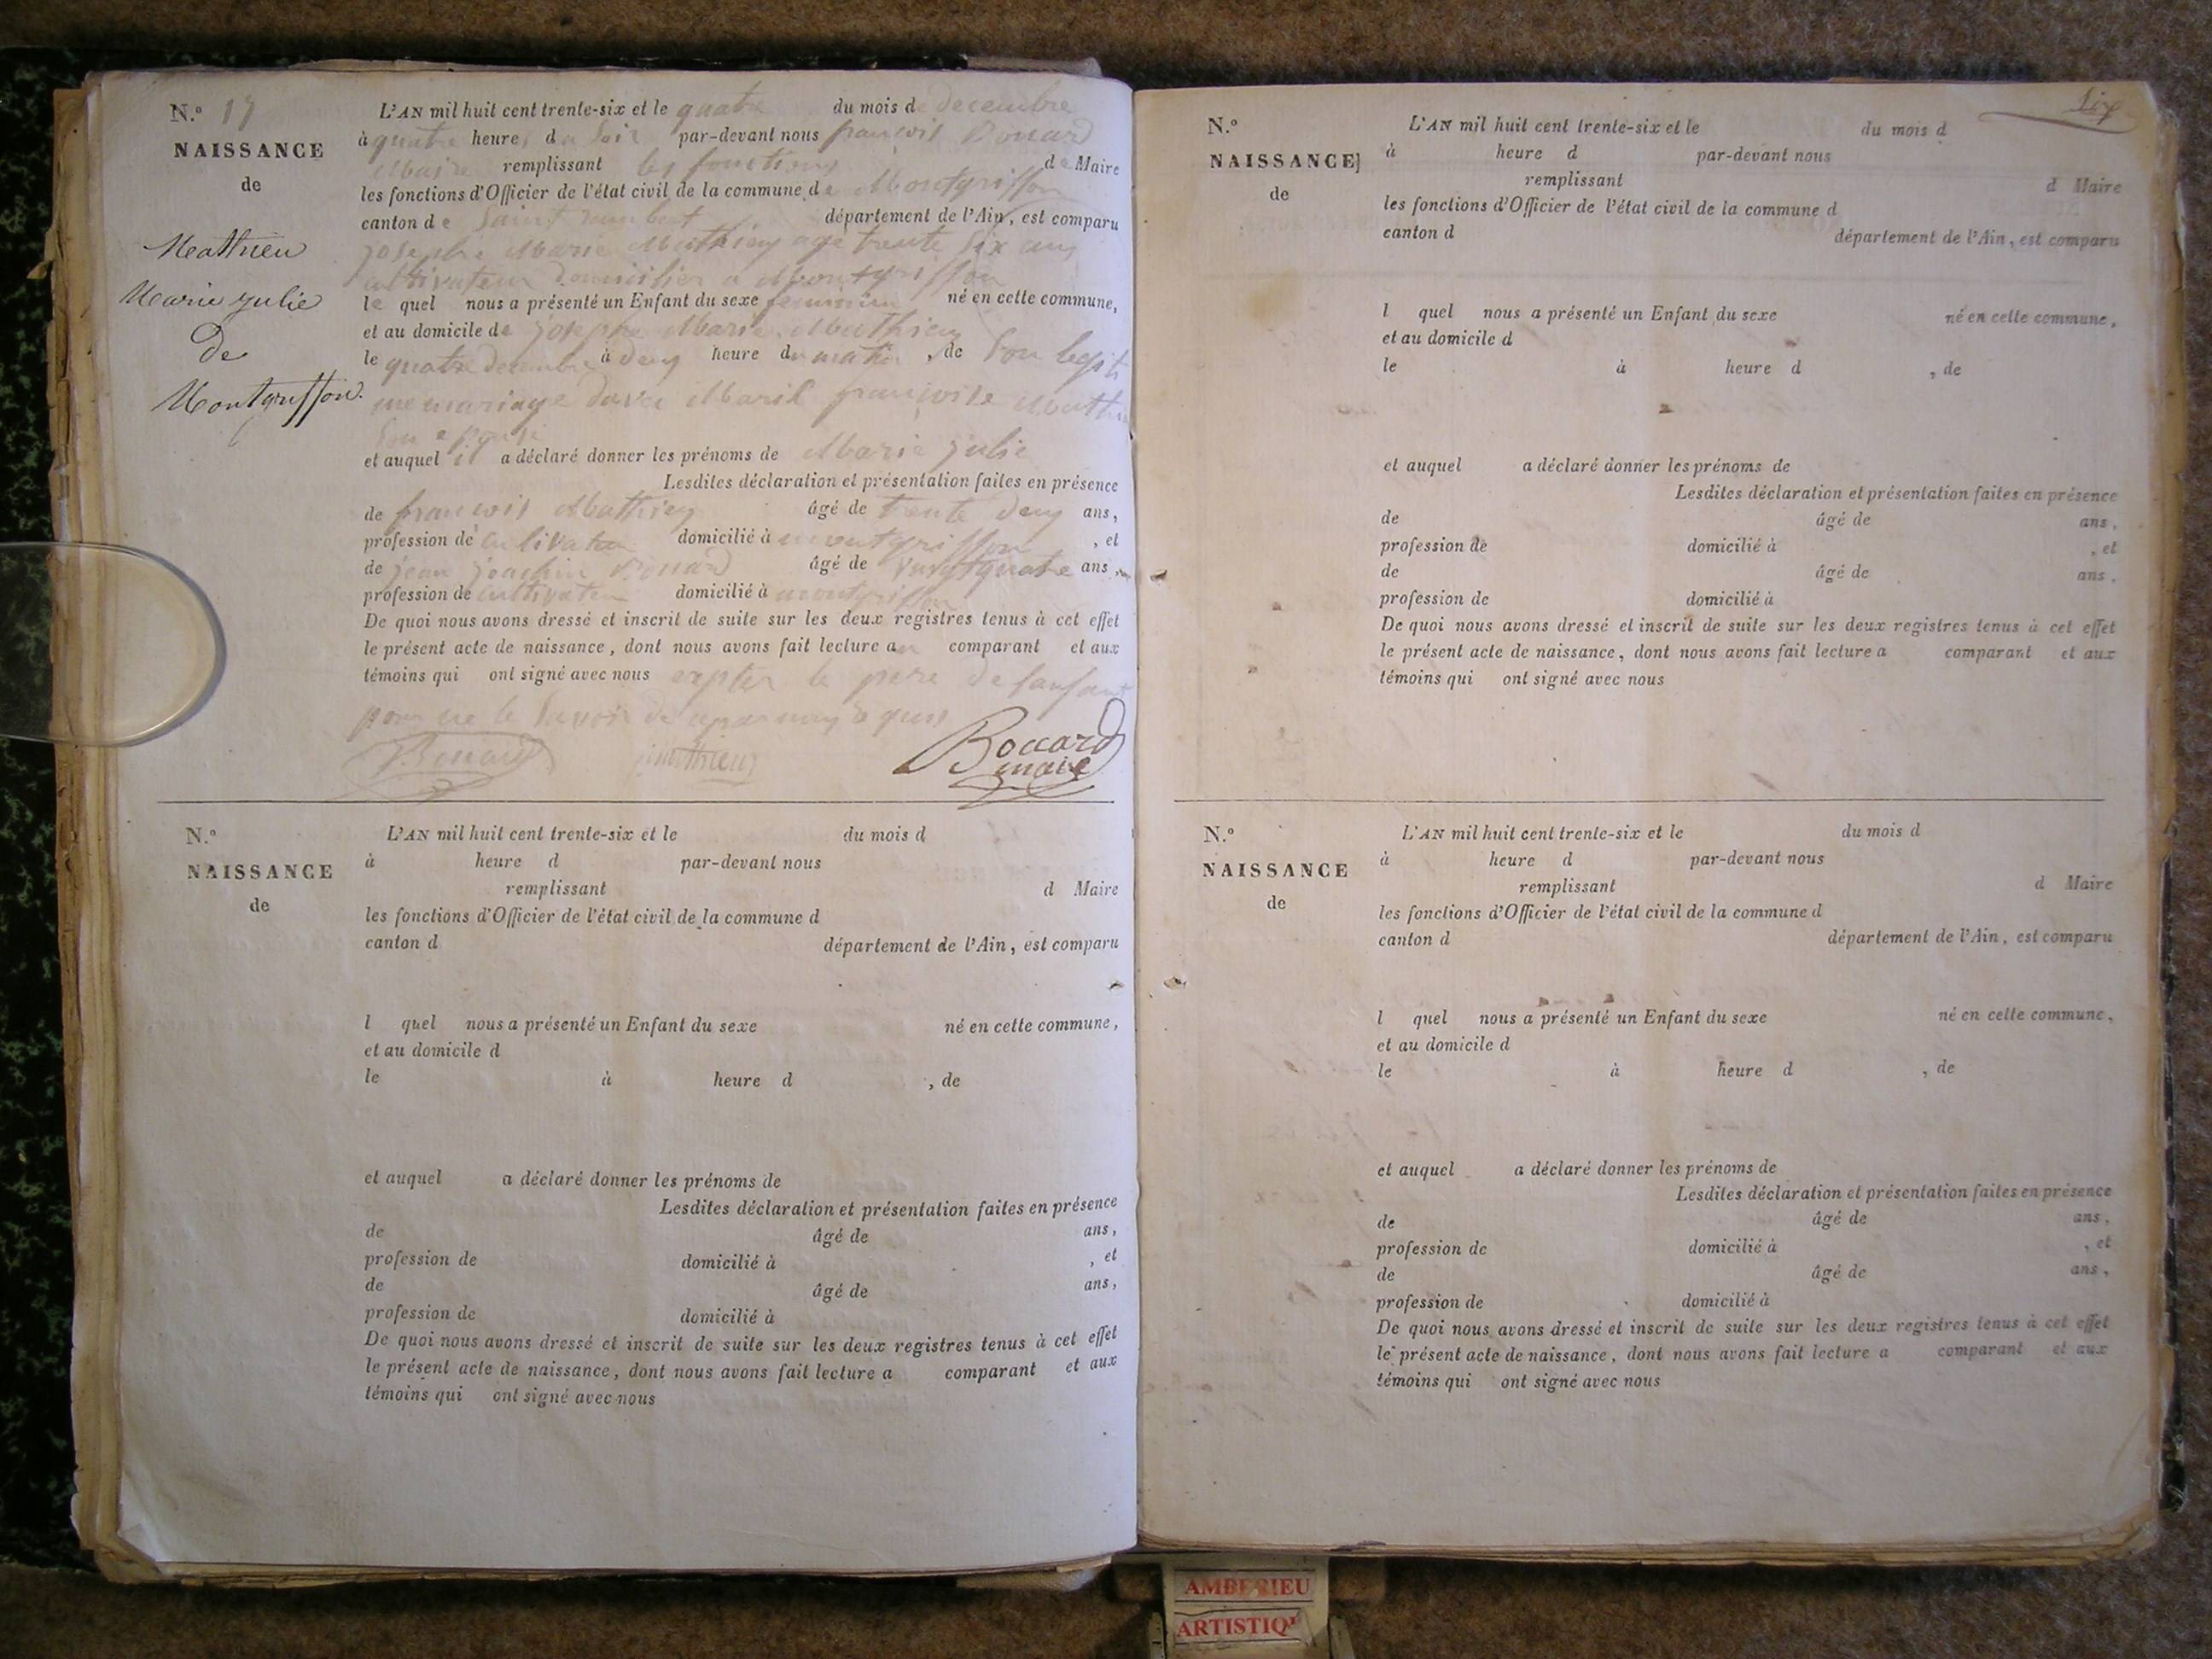 N.º 17
NAISSANCE
de
Mathieu
Marie julie
De
Montgriffon.
L'AN mil huit cent trente-six et le quatre du mois de decembre
à quatre heures du soir par-devant nous françois Bouard
Maire remplissant les fonctions de Maire
les fonctions d'Officier de l'état civil de la commune de Montgriffon
canton de Saint rambert département de l'Ain, est comparu
josephe Marie Mathieu age trente six ans
cultivateur domicilier a Montgriffon
le quel nous a présenté un Enfant du sexe feminin né en cette commune,
et au domicile de josephe Marie Mathieu
le quatre decembre à deux heure du matin, de son legiti
me mariage davec Marie françoise Mathieu
son epouse
et auquel il a déclaré donner les prénoms de Marie julie
Lesdites déclaration et présentation faites en présence
de françois Mathieu âgé de trente deux ans,
profession de cultivateur domicilié à montgriffon, et
de jean joachim Bouard âgé de vingt quatre ans,
profession de cultivateur domicilié à montgriffon
De quoi nous avons dressé et inscrit de suite sur les deux registres tenus à cet effet
le présent acte de naissance, dont nous avons fait lecture au comparant et aux
témoins qui ont signé avec nous le pere de lanfant
pour ne le savoir de
Bouard mathieu Bouard
maire
N.º
NAISSANCE
de
L'AN mil huit cent trente-six et le du mois d
à heure d par-devant nous
remplissant d Maire
les fonctions d'Officier de l'état civil de la commune d
canton d département de l'Ain, est comparu
l quel nous a présenté un Enfant du sexe né en cette commune,
et au domicile d
le à heure d , de
et auquel a déclaré donner les prénoms de
Lesdites déclaration et présentation faites en présence
de âgé de ans,
profession de domicilié à , et
de âgé de ans,
profession de domicilié à
De quoi nous avons dressé et inscrit de suite sur les deux registres tenus à cet effet
le présent acte de naissance, dont nous avons fait lecture a comparant et aux
témoins qui ont signé avec nous
six
N.º
NAISSANCE]
de
L'AN mil huit cent trente-six et le du mois d
à heure d par-devant nous
remplissant d Maire
les fonctions d'Officier de l'état civil de la commune d
canton d département de l'Ain, est comparu
l quel nous a présenté un Enfant du sexe né en cette commune,
et au domicile d
le à heure d , de
et auquel a déclaré donner les prénoms de
Lesdites déclaration et présentation faites en présence
de âgé de ans,
profession de domicilié à , et
de âgé de ans,
profession de domicilié à
De quoi nous avons dressé et inscrit de suite sur les deux registres tenus à cet effet
le présent acte de naissance, dont nous avons fait lecture a comparant et aux
témoins qui ont signé avec nous
N.º
NAISSANCE
de
L'AN mil huit cent trente-six et le du mois d
à heure d par-devant nous
remplissant d Maire
les fonctions d'Officier de l'état civil de la commune d
canton d département de l'Ain, est comparu
l quel nous a présenté un Enfant du sexe né en cette commune,
et au domicile d
le à heure d , de
et auquel a déclaré donner les prénoms de
Lesdites déclaration et présentation faites en présence
de âgé de ans,
profession de domicilié à , et
de âgé de ans,
profession de domicilié à
De quoi nous avons dressé et inscrit de suite sur les deux registres tenus à cet effet
le présent acte de naissance, dont nous avons fait lecture a comparant et aux
témoins qui ont signé avec nous
AMBERIEU
ARTISTIQ